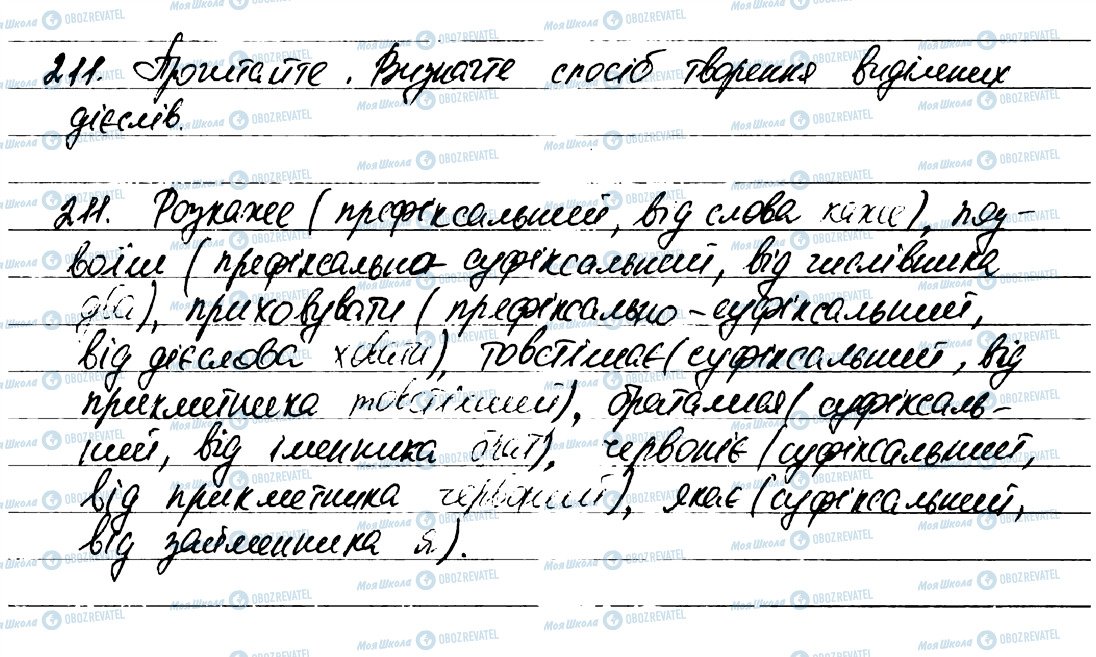 211. Прочитайте. Визначте спосіб творення виділених
дієслів.
211. Розкаже (префіксальний, від слова каже), под-
воїш (префіксально-суфіксальний, від числівника
два), приховувати (префіксально-суфіксальний,
від дієслова ховати), товстішає (суфіксальний, від
прикметника товстіший), братались (суфіксаль-
ний, від іменника брат), червоніє (суфіксальний,
від прикметника червоний), якає (суфіксальний,
від займенника я).